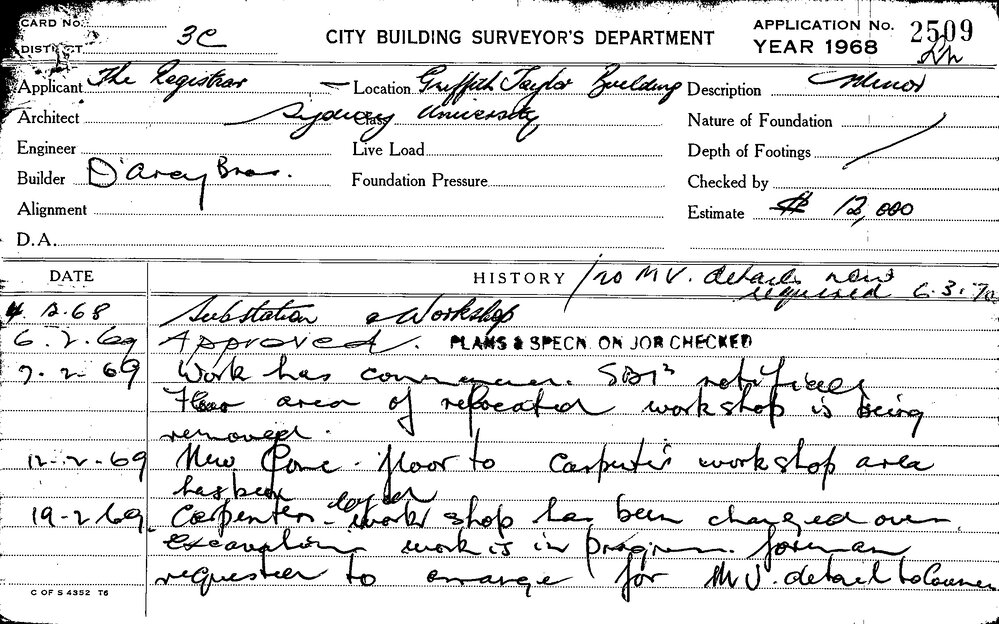 CARD No.
DISTRICT 3C
CITY BUILDING SURVEYOR'S DEPARTMENT
APPLICATION No. 2509
YEAR 1968
Applicant The Registrar
Location Griffith Taylor Building
Description Minor
Architect
Class
Sydney University
Nature of Foundation
Engineer
Live Load
Depth of Footings
Builder D'Arcy Bros.
Foundation Pressure
Checked by
Alignment
Estimate $ 12,000
D.A.
DATE
HISTORY / no M.V. details now
required 6.3.70
4. 12.68 Substation & Workshop
6.2.69 Approved. PLANS & SPECN. ON JOB CHECKED
7.2.69 Work has commenced. notified
Floor area of relocated workshop is being
removed.
12-2-69 New Conc. floor to Carpenter's workshop area
has been layed
19-2-69 Carpenters work shop has been changed over.
Excavation work is in progress. foreman
requested to arrange for M.V. detail to Council
C OF S 4352 T6